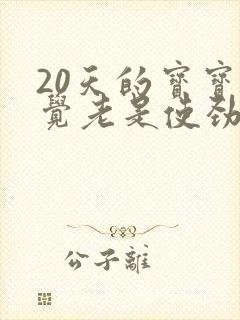 20天的寶寶
覺老是使勁
公子離